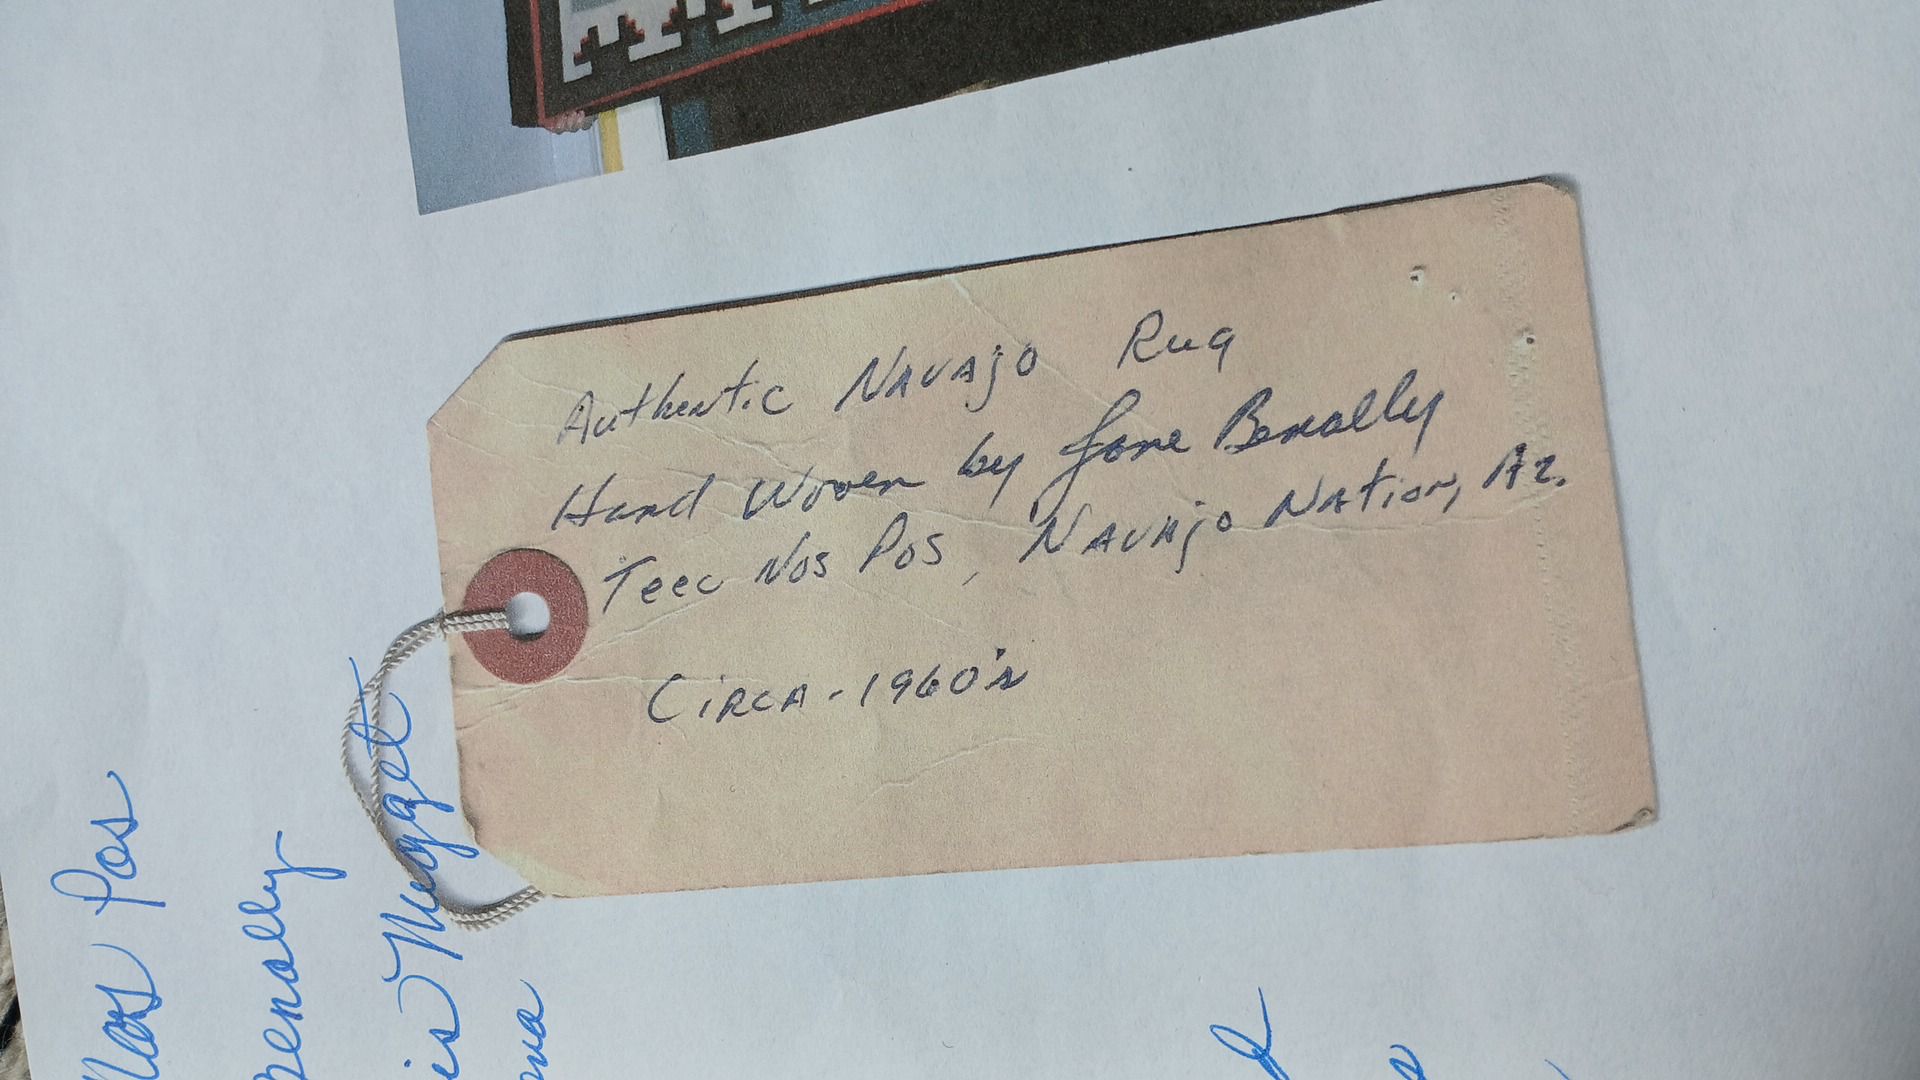 Authentic Navajo Rug
Hand Woven by Jane Benally
Teec Nos Pos, Navajo Nation, Az.
Circa - 1960's
Nos Pos
Benally
is Nugget
ona